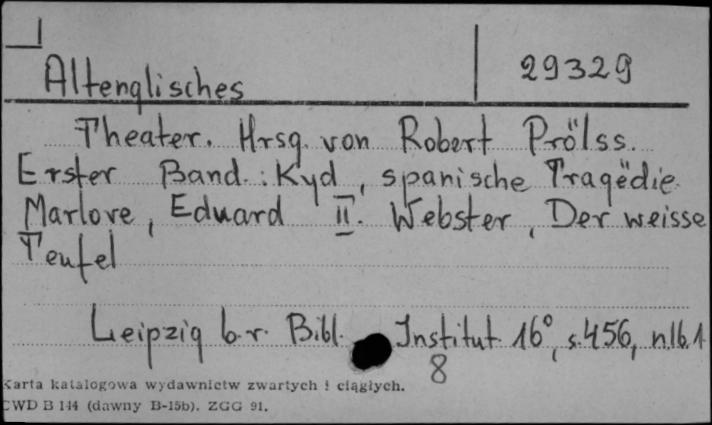 Altenglisches 29329
Theater. Hrsg. von Robert Prölss.
Erster Band: Kyd, spanische Tragëdie.
Marlove, Eduard II. Webster, Der weisse
Teufel
Leipzig b.r. Bibl. Institut 16°, s. 456, nlb. 1
8
Karta katalogowa wydawnictw zwartych i ciągłych.
CWD B 144 (dawny B-15b). ZGG 91.